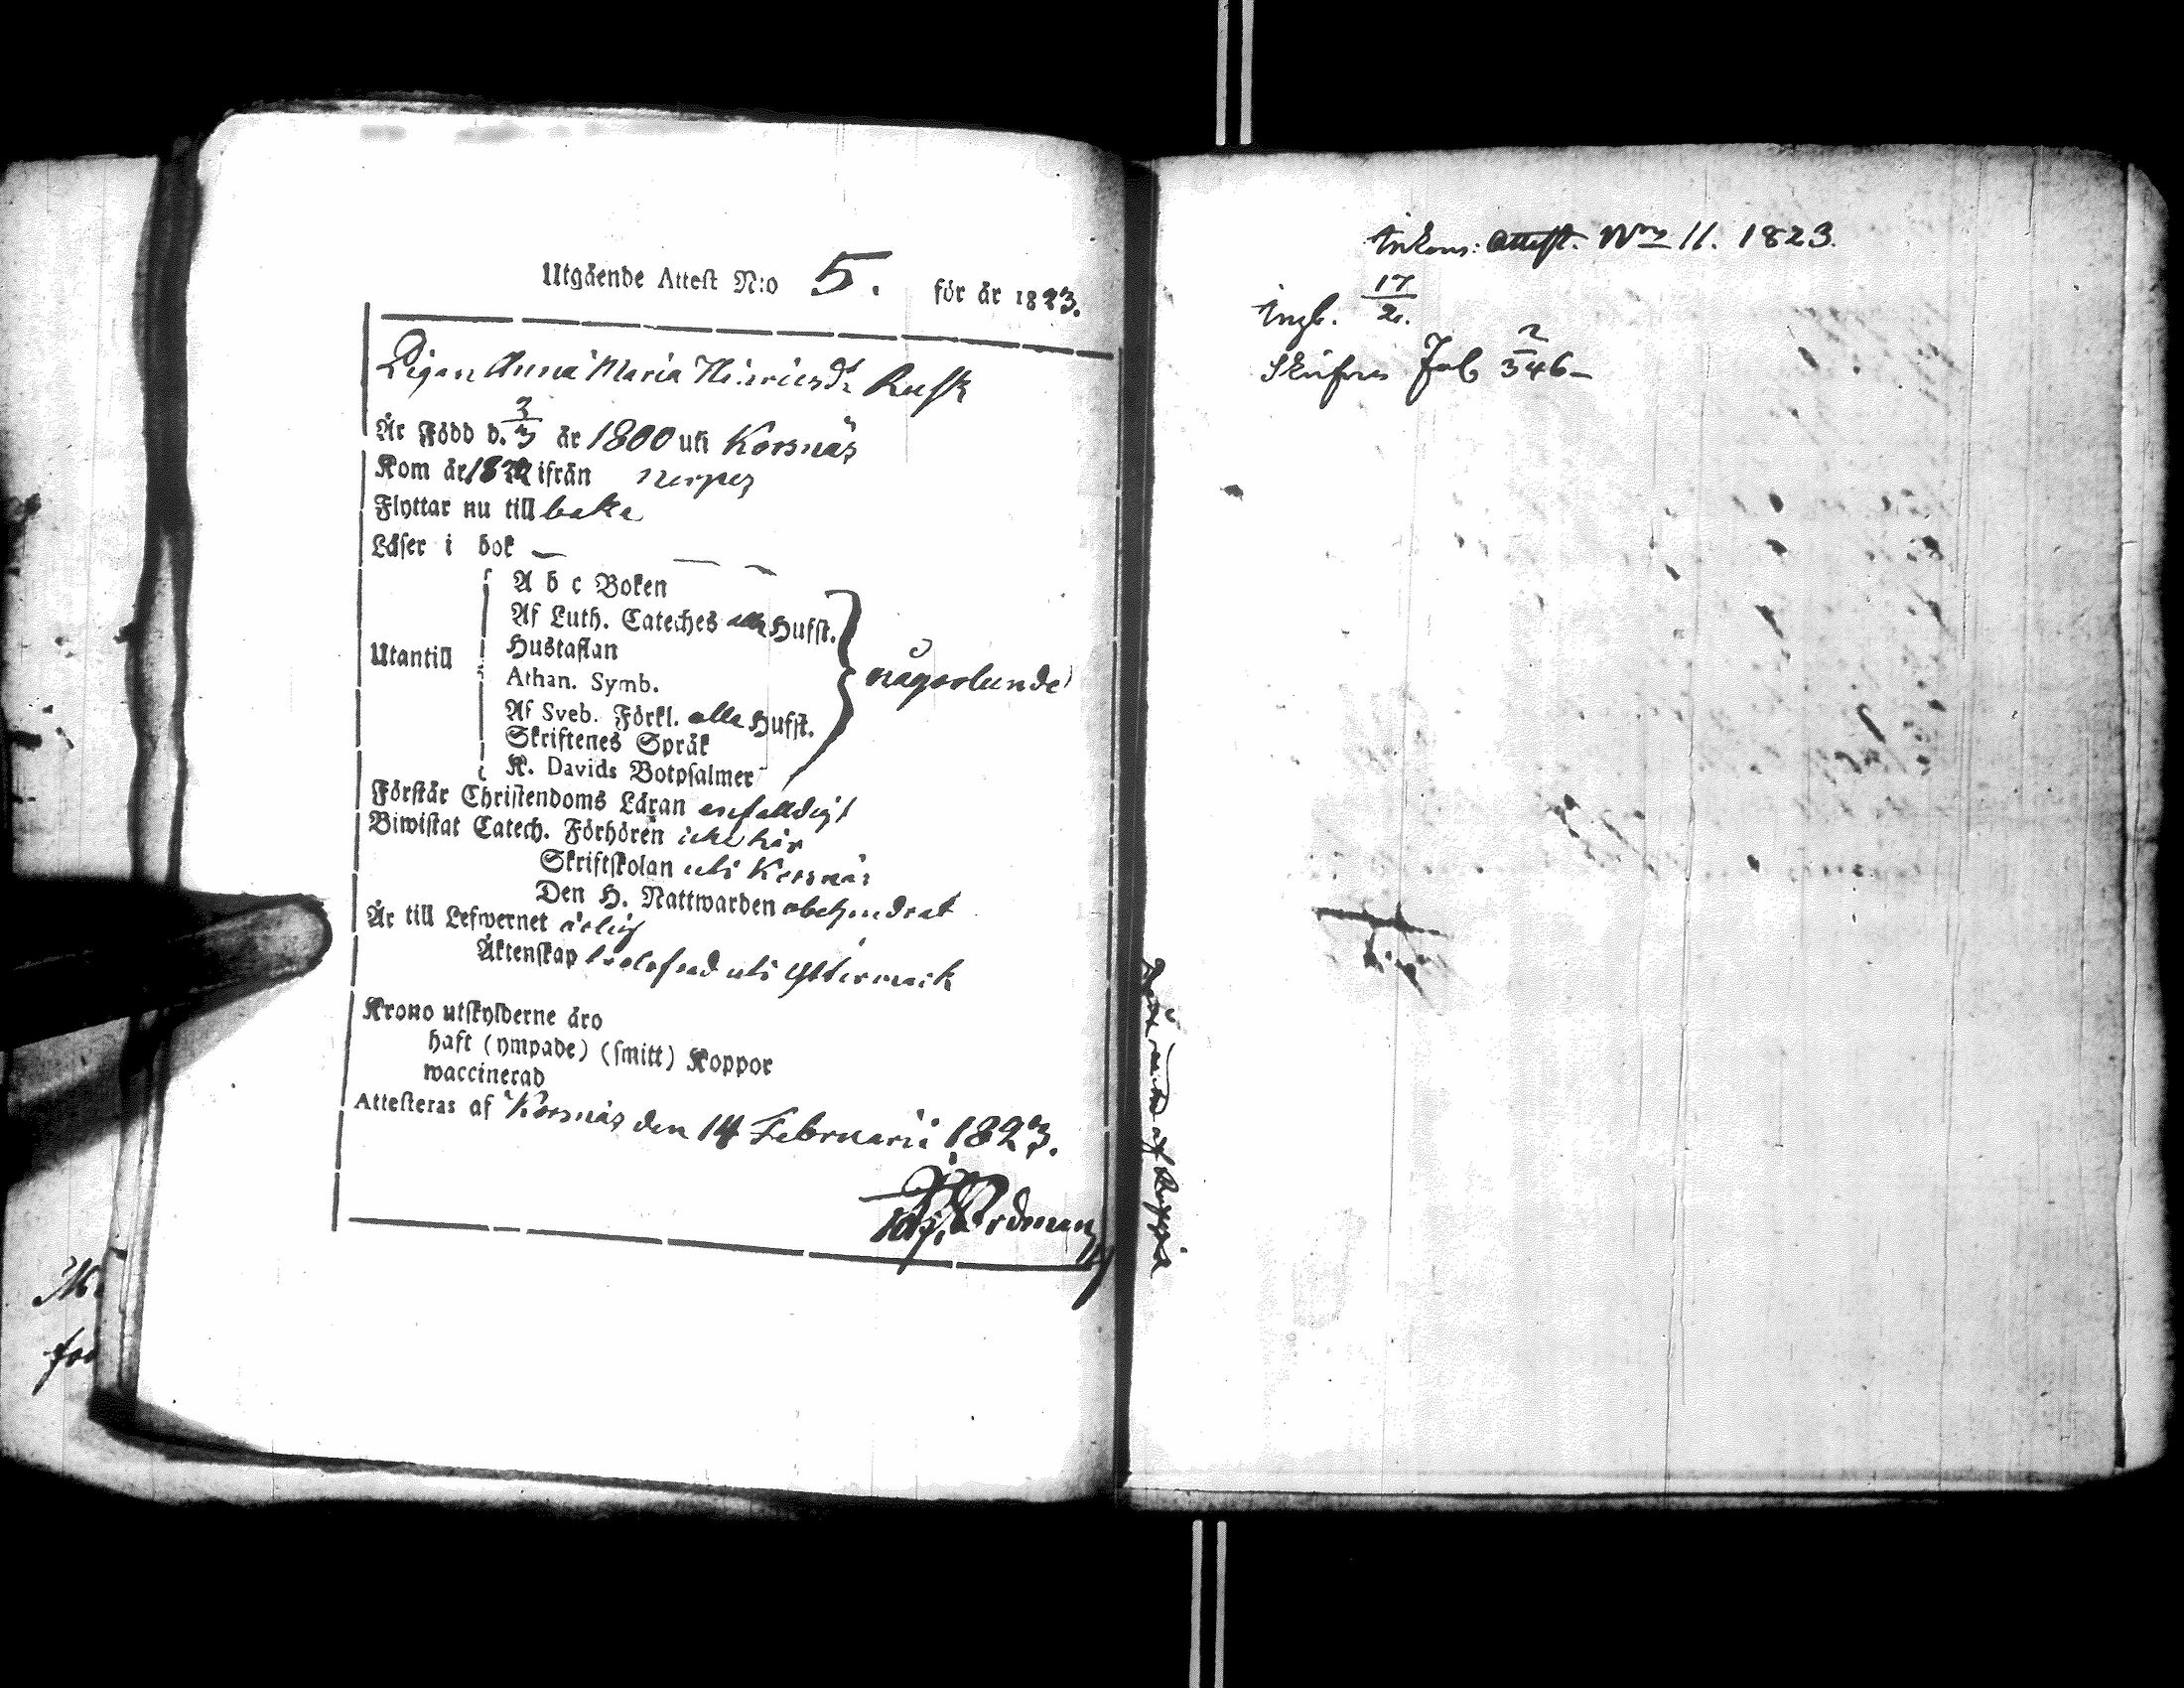 Utgående Attest N:o 5. för år 1823.
Pigan Anna Maria Hinricsdr Rusk
Är Född d. 3/3 år 1800 uti Korsnäs
Kom år 1822 ifrån Nerpes
Flyttar nu till baka
Läser i bok —
A b c Boken
Af Luth. Cateches alla Hufst.
Hustaflan
Utantill
Athan. Symb.
någorlunda
Af Sveb. Förkl. alla Hufst.
Skriftenes Språk
K. Davids Botpsalmer
Förstår Christendoms Läran enfaldigt
Biwistat Catech. Förhören icke här
Skriftskolan uti Korsnäs
Den H. Nattwarden obehindrat
Är till Lefwernet ärlig
Äktenskap trolofvad uti Yttermark
Krono utskylderne äro
haft (ympade) (smitt) Koppor
waccinerad
Attesteras af Korsnäs den 14 Februarii 1823.
Nordman
Inkom: Attest. Nro 11. 1823.
17/2.
Skrifven Fol 346